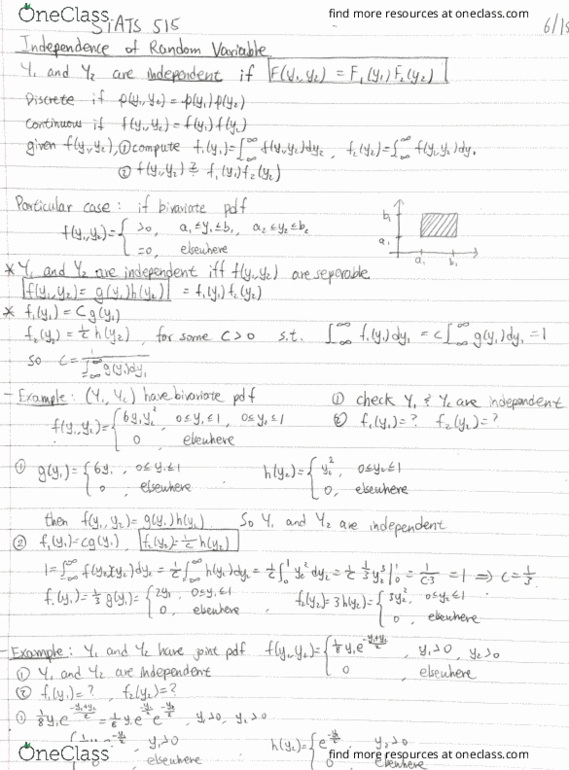 OneClass
find more resources at oneclass.com
STATS 515
6/15
Independence of Random Variable
Y₁ and Y₂ are independent if F(y₁,y₂) = F₁(y₁)F₂(y₂)
Discrete if p(y₁,y₂)=p(y₁)p(y₂)
Continuous if f(y₁,y₂)=f(y₁)f(y₂)
given f(y₁,y₂), ① compute f₁(y₁)=∫_{-∞}^{∞} f(y₁,y₂)dy₂, f₂(y₂)=∫_{-∞}^{∞} f(y₁,y₂)dy₁
② f(y₁,y₂) ≟ f₁(y₁)f₂(y₂)
Particular case: if bivariate pdf
f(y₁,y₂)={ >0, a₁≤y₁≤b₁, a₂≤y₂≤b₂
=0, elsewhere
b₁
a₁
a₁ b₁
* Y₁ and Y₂ are independent iff f(y₁,y₂) are seperable
f(y₁,y₂)= g(y₁)h(y₂) = f₁(y₁)f₂(y₂)
* f₁(y₁)=Cg(y₁)
f₂(y₂)=1/c h(y₂), for some C>0 s.t. ∫_{-∞}^{∞} f₁(y₁)dy₁ = c∫_{-∞}^{∞} g(y₁)dy₁=1
so C= 1/∫_{-∞}^{∞} g(y₁)dy₁
- Example: (Y₁, Y₂) have bivariate pdf ① check Y₁ & Y₂ are independent
f(y₁,y₂)={ 6y₁y₂², 0≤y₁≤1, 0≤y₂≤1 ② f₁(y₁)=? f₂(y₂)=?
0, elsewhere
① g(y₁)={ 6y₁, 0≤y₁≤1 h(y₂)={ y₂², 0≤y₂≤1
0, elsewhere 0, elsewhere
then f(y₁,y₂)=g(y₁)h(y₂). So Y₁ and Y₂ are independent
② f₁(y₁)=cg(y₁), f₂(y₂)=1/c h(y₂)
1=∫_{-∞}^{∞} f₂(y₂)dy₂ = 1/c ∫_{-∞}^{∞} h(y₂)dy₂ = 1/c ∫₀¹ y₂² dy₂ = 1/c 1/3 y₂³|₀¹ = 1/(c·3) = 1 ⇒ C=1/3.
f₁(y₁)=1/3 g(y₁)={ 2y₁, 0≤y₁≤1 f₂(y₂)=3h(y₂)={ 3y₂², 0≤y₂≤1
0, elsewhere 0, elsewhere
- Example: Y₁ and Y₂ have joint pdf f(y₁,y₂)={ 1/8 y₁e^{-(y₁+y₂)/2}, y₁>0, y₂>0
0, elsewhere
① Y₁ and Y₂ are independent
② f₁(y₁)=?, f₂(y₂)=?
① 1/8 y₁e^{-(y₁+y₂)/2} = 1/8 y₁e^{-y₁/2} e^{-y₂/2}, y₁>0, y₂>0
y₁>0 h(y₂)={ e^{-y₂/2} y₂>0
elsewhere 0, elsewhere
OneClass
find more resources at oneclass.com